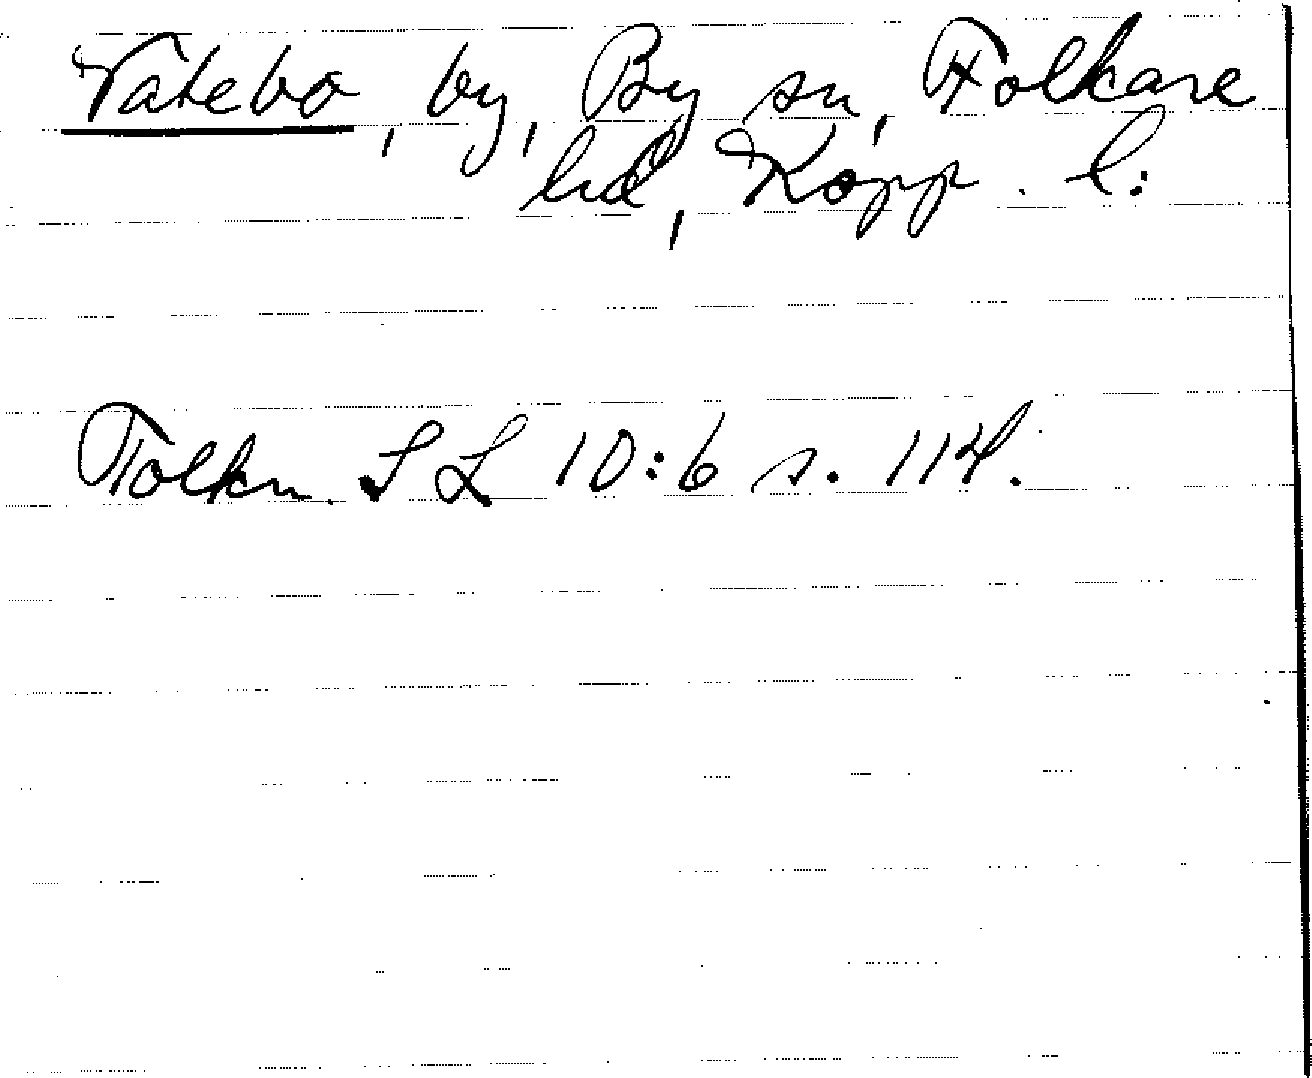 Vatebo, by, By sn, Folkare
hd, Kopp. l:
Tolkn. SL 10:6 s. 114.